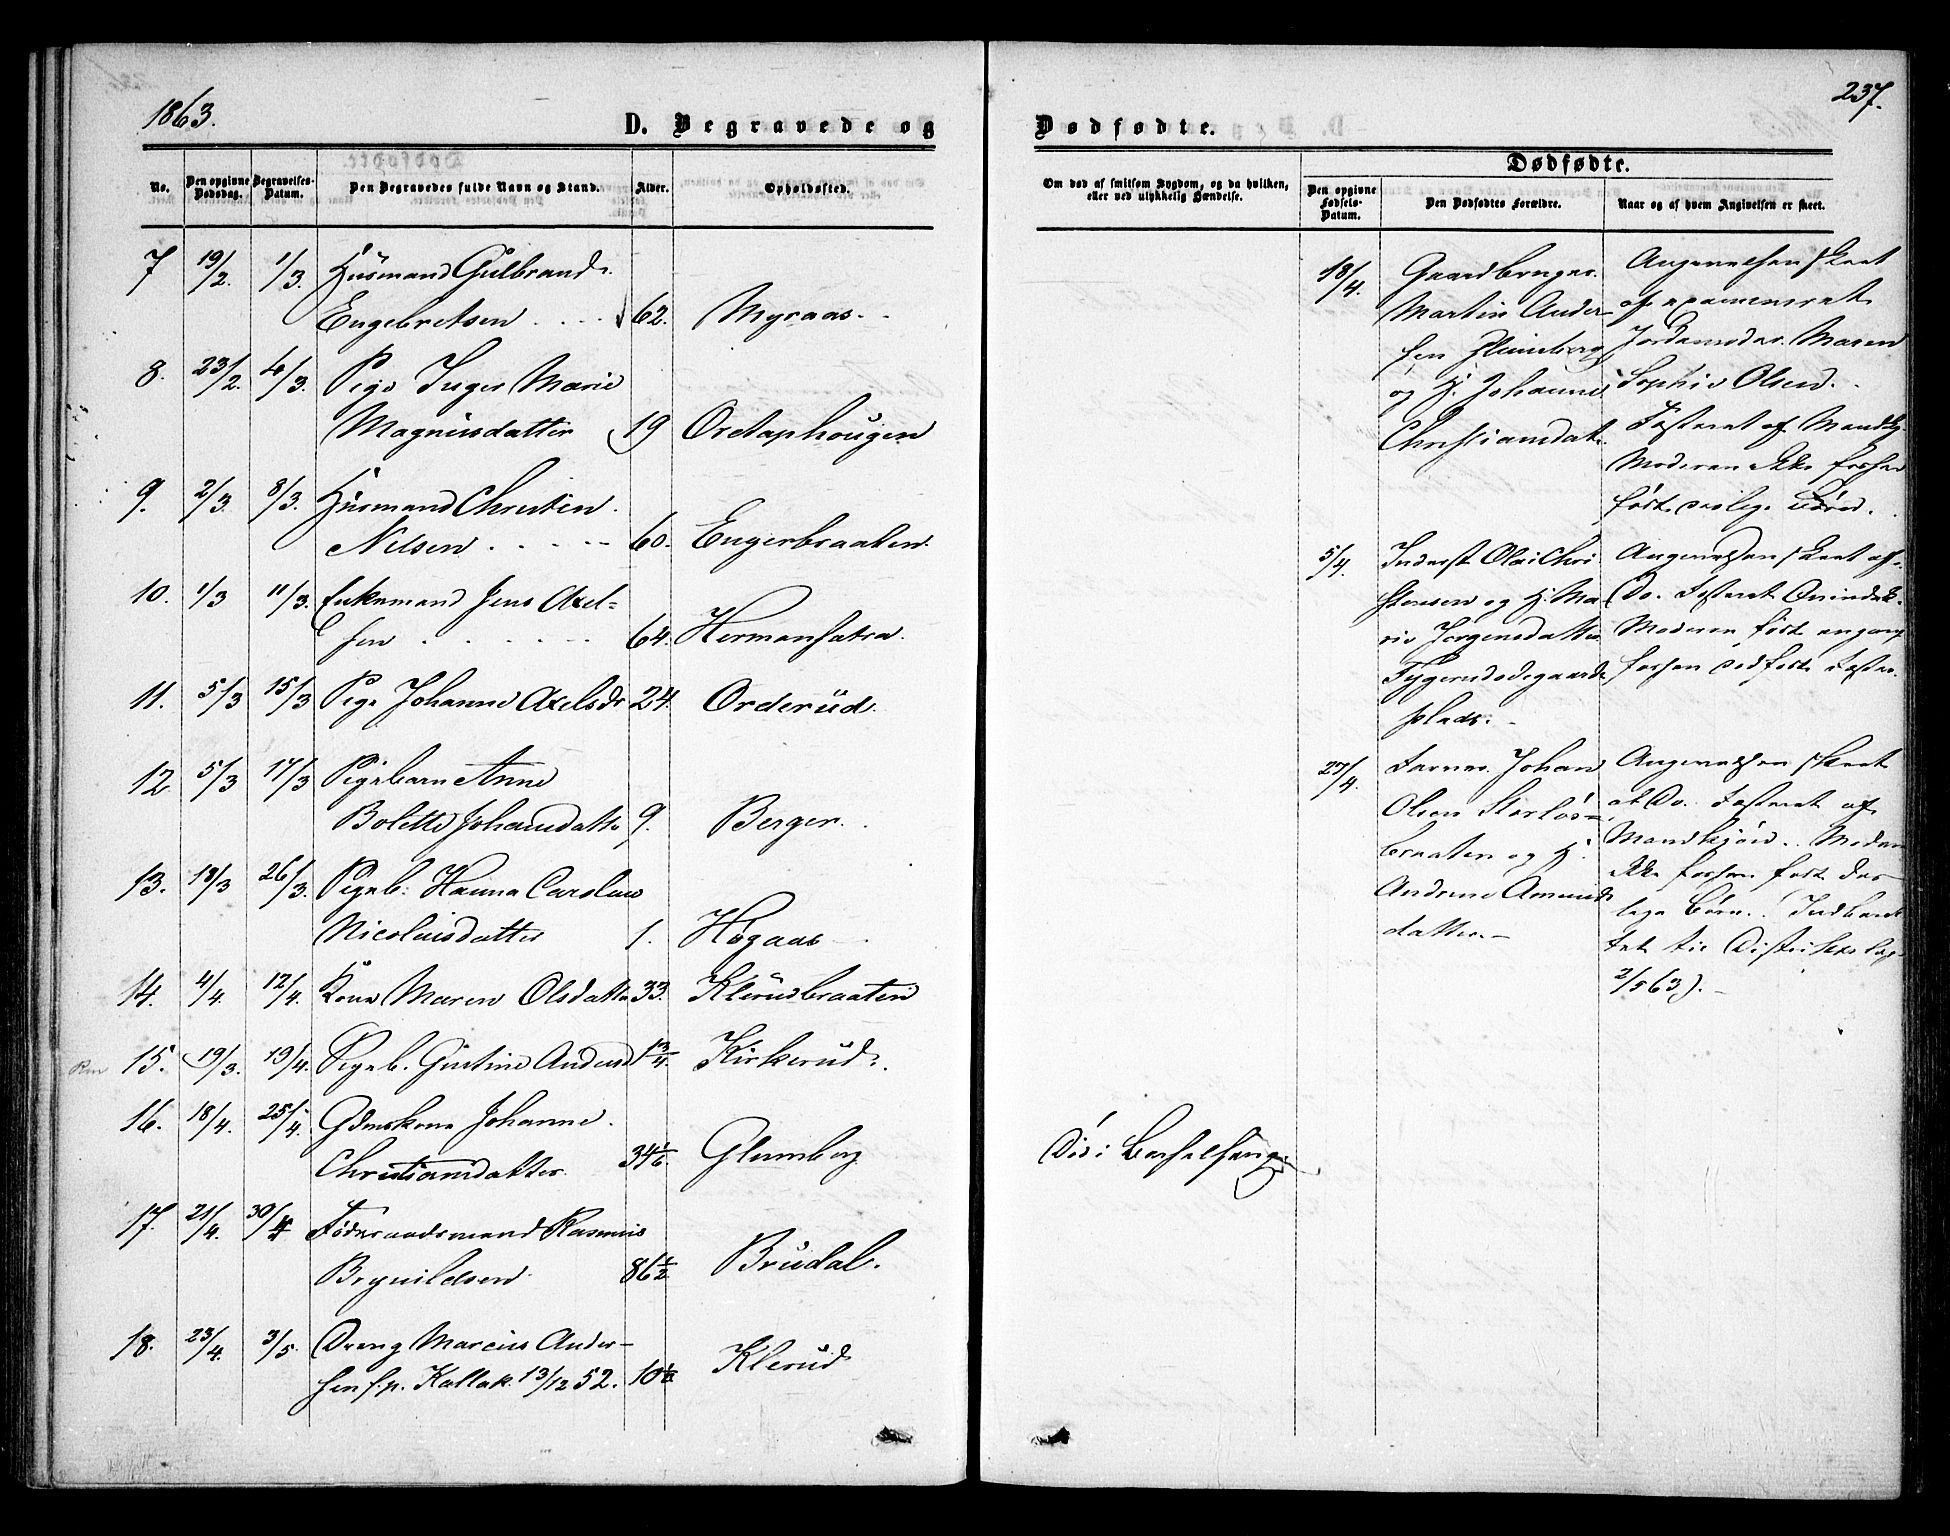 1863.
237.
D. Begravede og
Dødfødte.
No.
Den opgivne Dødsdag.
Begravelses-Datum.
Den Begravedes fulde Navn og Stand.
Alder.
Opholdssted.
Om død af smitsom Sygdom, og da hvilken,
eller ved ulykkelig Hændelse.
Dødfødte.
Den opgivne Fødsels-Datum.
Den Dødfødtes Forældre.
Naar og af hvem Angivelsen er skeet.
7 19/2. 1/3. Husmand Gulbrand
Engebretsen . . . . 62. Myraas.
8. 23/2. 4/3. Pige Inger Marie
Magnusdatter 19
9. 2/3. 8/3. Husmand Christen
Nilsen . . . . 60. Engerbraaten.
10. 1/3 11/3. Enkemand Jens Axel=
sen . . . . . . 64. Hermansætra.
11. 5/3 15/3 Pige Johanne Axelsdr 24. Orderud.
12 5/3 17/3 Pigebarn Anne
Bolette Johansdatter 9. Berger.
13. 18/3 26/3. Pigeb. Hanna Caroline
Nicolaisdatter 1. Høgaas
14. 4/4. 12/4. Kone Maren Olsdatter 33. Klerudbraaten
15. 19/3. 19/4. Pigeb. Gustine Andersd 1 3/4. Kirkerud.
16. 18/4. 25/4. Gdmskone Johanne
Christiansdatter. 34 1/6. Glenneberg
Død i Barselseng.
17. 21/4. 30/4 Føderaadsmand Rasmus
Brynildsen 86 1/2 Brudal.
18. 23/4. 3/5. Dreng Marcus Ander-
sen f. p. Kallak. 13/12 52. 10 Klerud
18/4. Gaardbruger
Martin Ander-
sen
og H. Johanne
Christiansdat.
Angivelsen skeet
af examineret
Jordemoder Maren
Sophie Olsen.
Fosteret af Mandkj.
Moderen ikke forhen
født Børn.
5/4. Inderst Olai Chri
stensen og H. Ma-
rie Jørgensdatter
plads.
Angivelsen skeet af
Do. Fosteret Qvindek.
Moderen født
27/4. Johan
Olsen
braaten og H.
Andrine Amunds
datter.
Angivelsen skeet
af Do. Fosteret af
Mandkjøn. Moderen
ikke forhen født død-
lige Børn. Indberet
tet til
2/5 63).